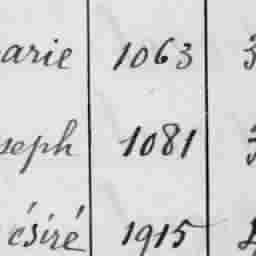 arie 1063
seph 1081
ésiré 1915